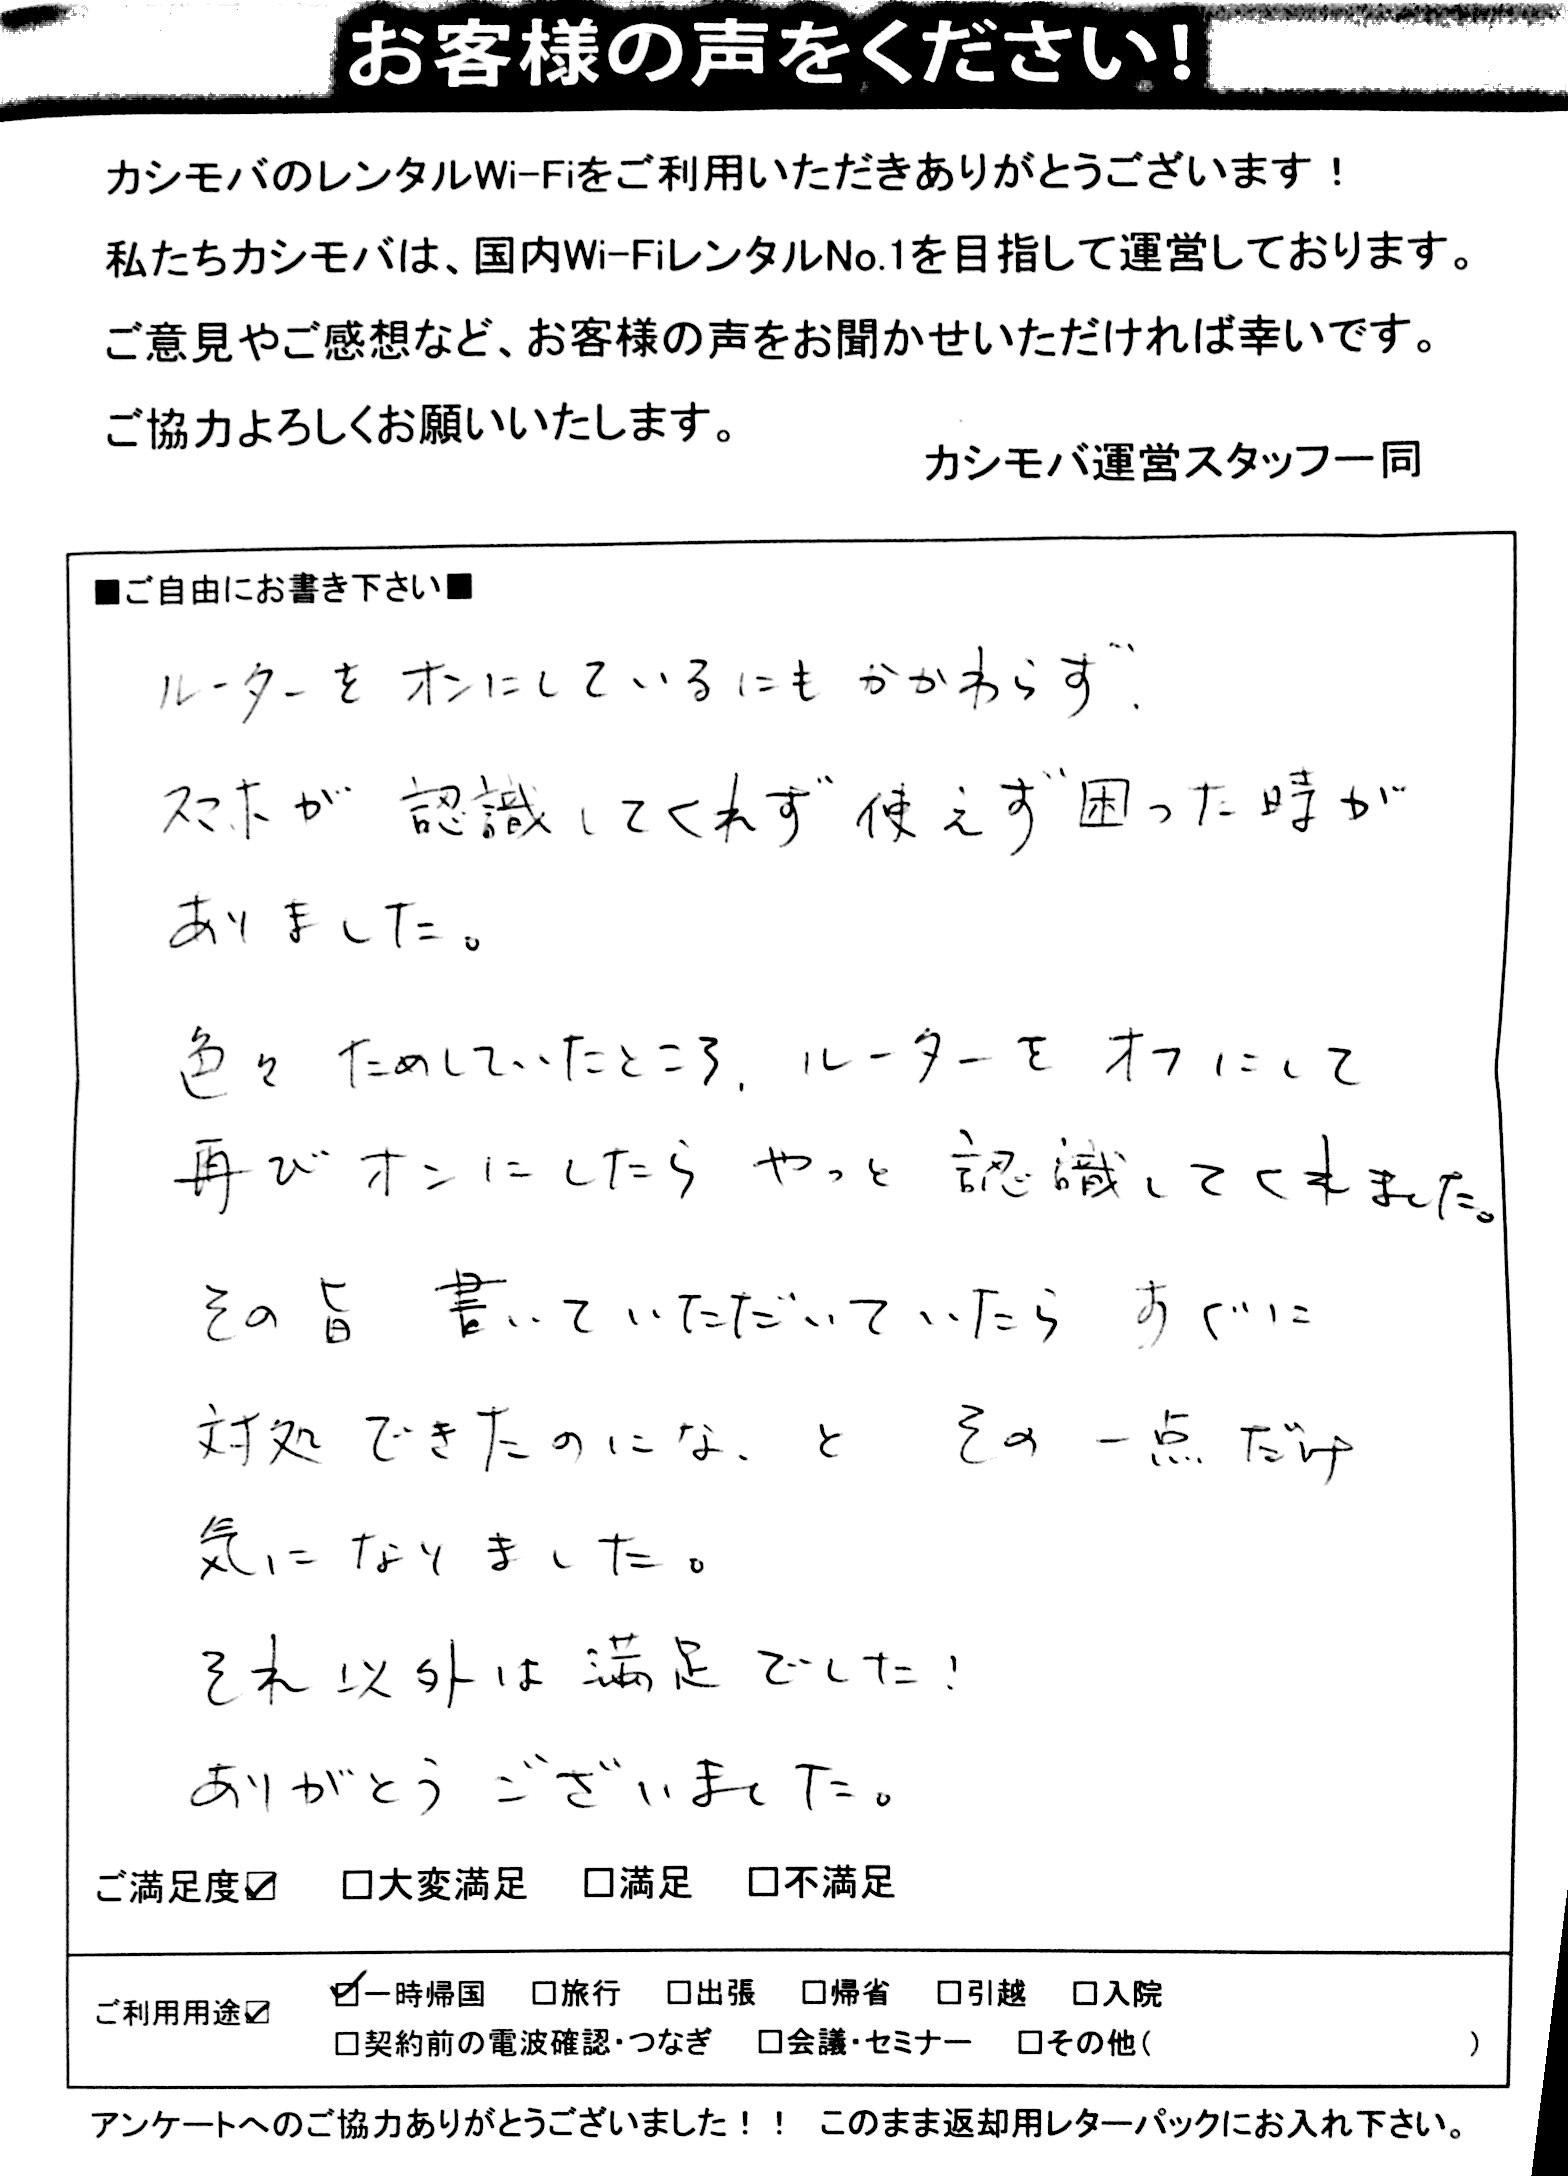 お客様の声をください!
カシモバのレンタルWi-Fiをご利用いただきありがとうございます!
私たちカシモバは、国内Wi-FiレンタルNo.1を目指して運営しております。
ご意見やご感想など、お客様の声をお聞かせいただければ幸いです。
ご協力よろしくお願いいたします。
カシモバ運営スタッフ一同
■ご自由にお書き下さい■
ルーターを オンにしているにも かかわらず、
スマホが 認識してくれず 使えず 困った時が
ありました。
色々 ためしていたところ、ルーターを オフにして
再び オンにしたら やっと 認識してくれました。
その旨 書いていただいていたら すぐに
対処 できたのにな、と その 一点だけ
気になりました。
それ以外は 満足でした!
ありがとう ございました。
ご満足度☑ □大変満足 □満足 □不満足
ご利用用途☑ ☑一時帰国 □旅行 □出張 □帰省 □引越 □入院
□契約前の電波確認・つなぎ □会議・セミナー □その他( )
アンケートへのご協力ありがとうございました!! このまま返却用レターパックにお入れ下さい。